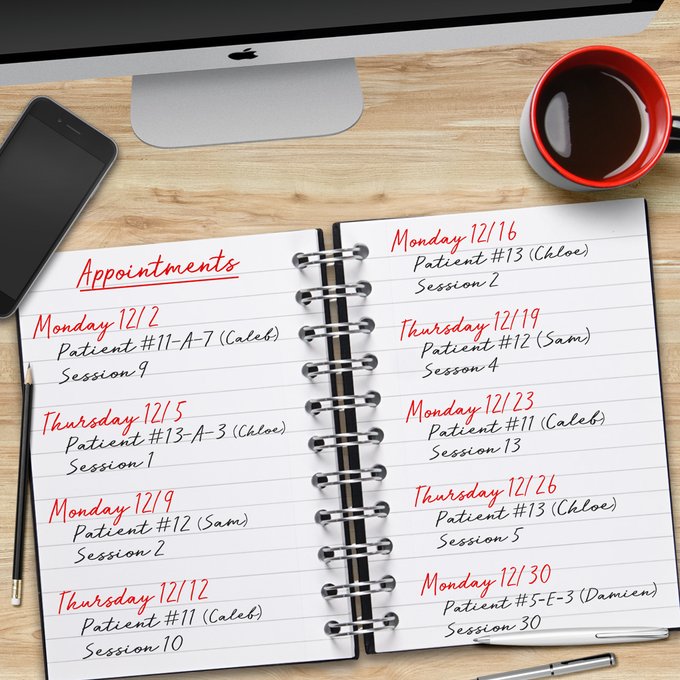 Appointments
Monday 12/2
Patient #11-A-7 (Caleb)
Session 9
Thursday 12/5
Patient #13-A-3 (Chloe)
Session 1
Monday 12/9
Patient #12 (Sam)
Session 2
Thursday 12/12
Patient #11 (Caleb)
Session 10
Monday 12/16
Patient #13 (Chloe)
Session 2
Thursday 12/19
Patient #12 (Sam)
Sesson 4
Monday 12/23
Patient #11 (Caleb)
Session 13
Thursday 12/26
Patient #13 (Chloe)
Session 5
Monday 12/30
Patient #5-E-3 (Damien)
Session 30